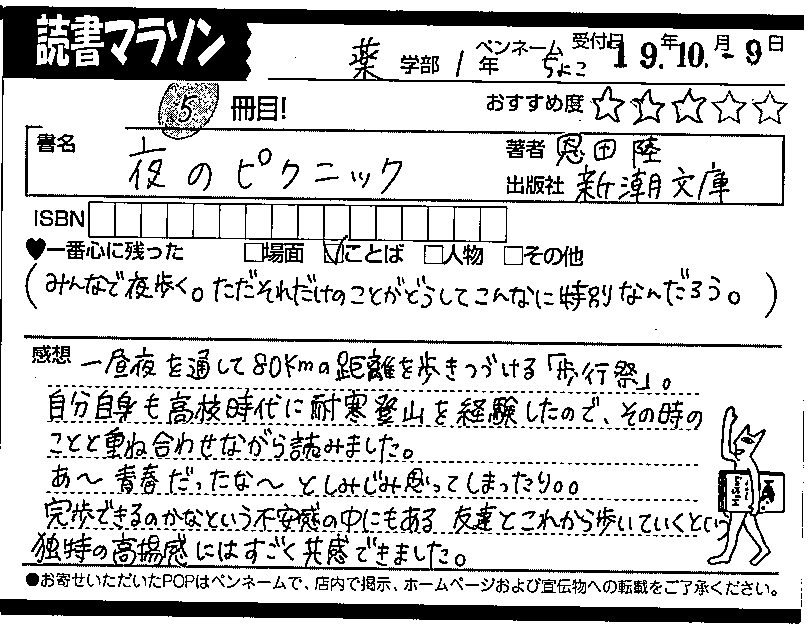 読書マラソン
薬 学部 1 年 ペンネーム ちょこ 受付日 19.年10.月-9日
5 冊目! おすすめ度 ☆☆☆☆☆
書名 夜のピクニック
著者 恩田 陸
出版社 新潮文庫
ISBN
♥一番心に残った □場面 ☑ことば □人物 □その他
(みんなで夜歩く。ただそれだけのことがどうしてこんなに特別なんだろう。)
感想 一昼夜を通して80kmの距離を歩きつづける「歩行祭」。
自分自身も高校時代に耐寒登山を経験したので、その時の
ことと重ね合わせながら読みました。
あ〜 青春だったな〜 としみじみ思ってしまったり。。
完歩できるのかなという不安感の中にもある 友達とこれから歩いていくという
独特の高揚感にはすごく共感できました。
●お寄せいただいたPOPはペンネームで、店内で掲示、ホームページおよび宣伝物への転載をご了承ください。